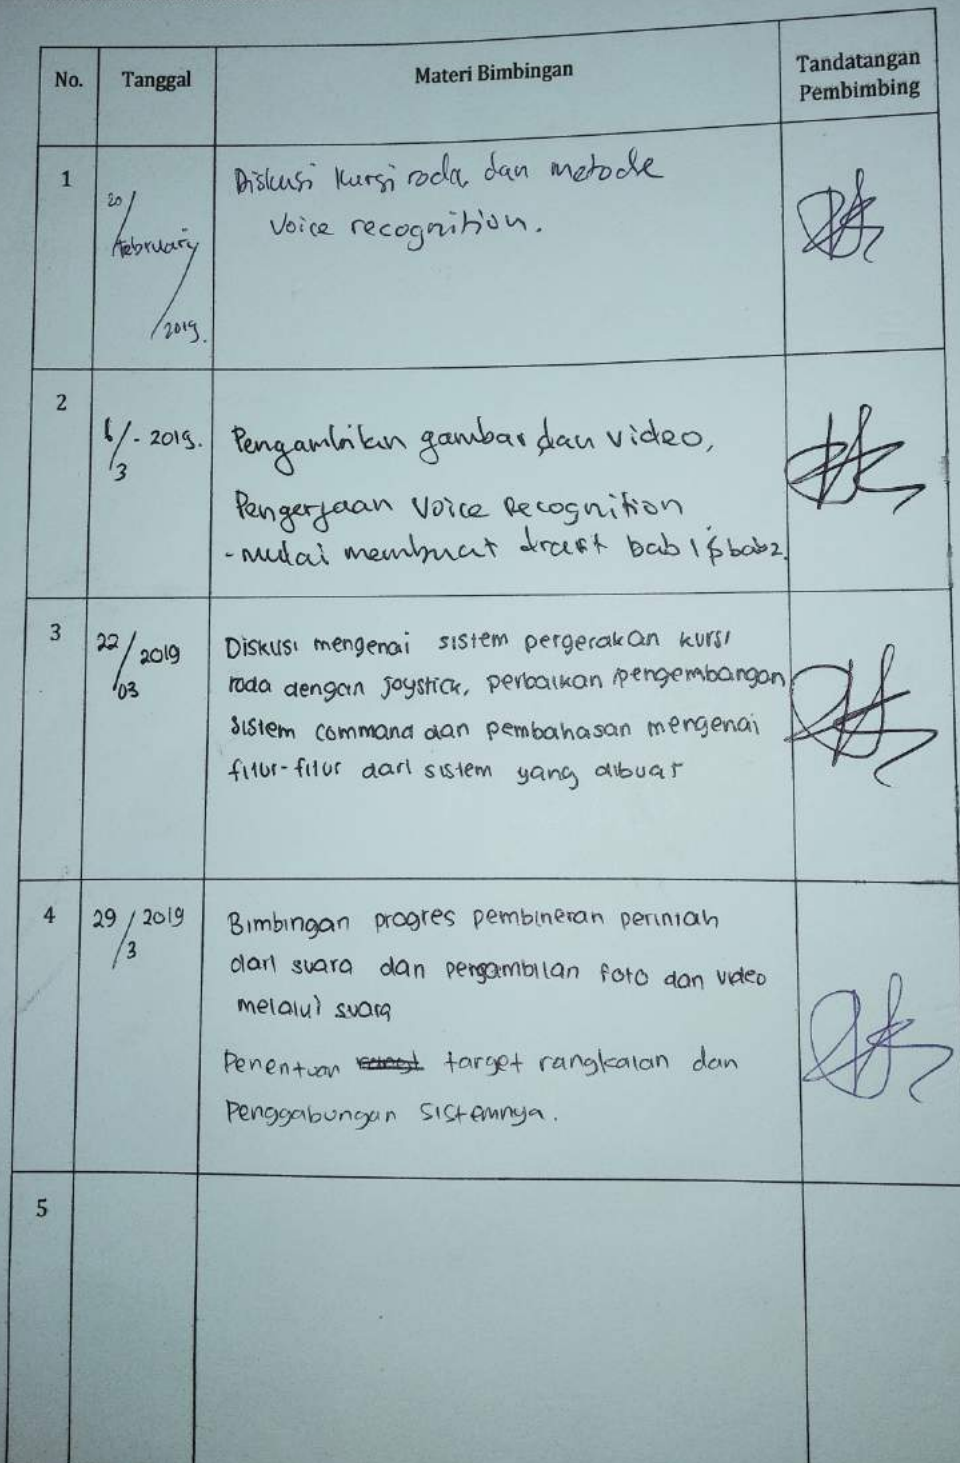 No. Tanggal Materi Bimbingan Tandatangan
Pembimbing
1
20/
February
/2019.
Diskusi kursi roda dan metode
Voice recognition.
2
6/3 - 2019.
Pengambilan gambar dan video,
Pengerjaan Voice Recognition
- mulai membuat draft bab 1 & bab 2.
3
22/03 2019
Diskusi mengenai sistem pergerakan kursi
roda dengan joystick, perbaikan/pengembangan
sistem command dan pembahasan mengenai
fitur-fitur dari sistem yang dibuat
4
29/3 2019
Bimbingan progres pembineran perintah
dari suara dan pengambilan foto dan video
melalui suara
Penentuan target rangkaian dan
Penggabungan sistemnya.
5